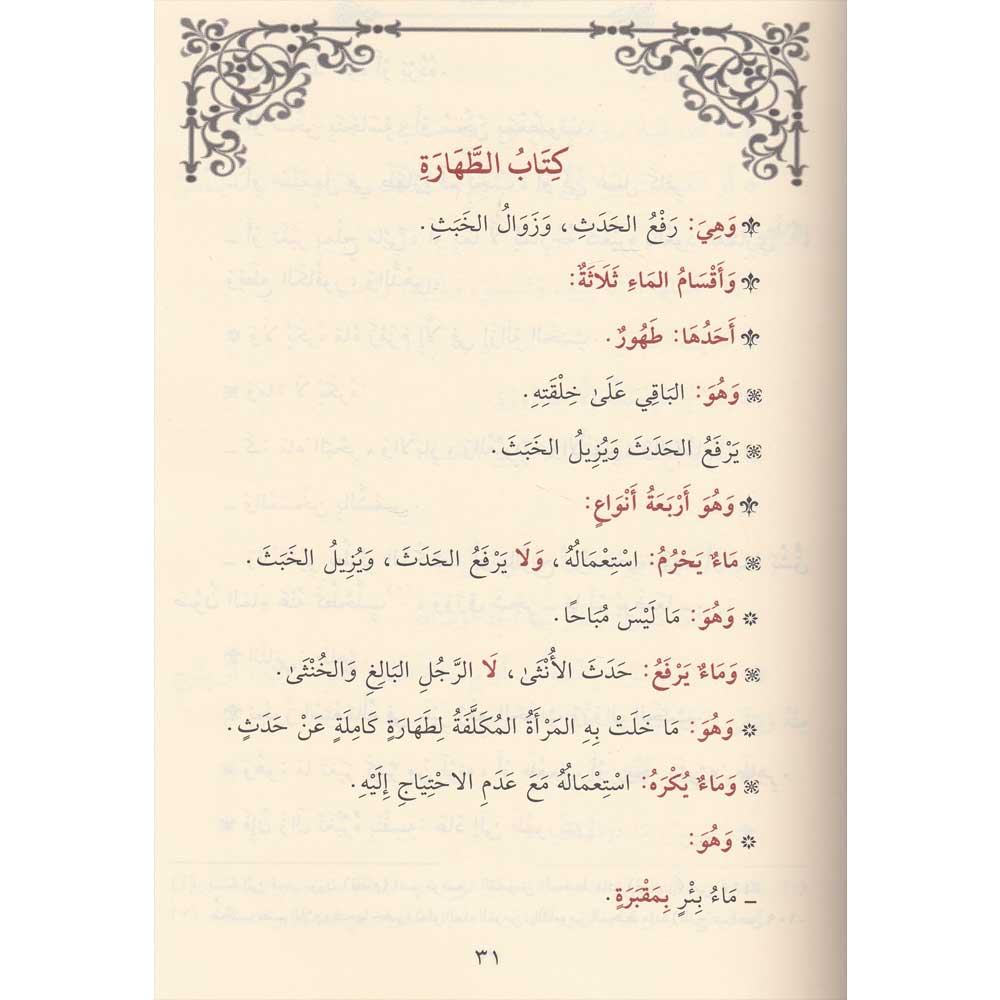 كِتَابُ الطَّهَارَةِ
وَهِيَ: رَفْعُ الحَدَثِ، وَزَوَالُ الخَبَثِ.
وَأَقْسَامُ المَاءِ ثَلَاثَةٌ:
أَحَدُهَا: طَهُورٌ.
وَهُوَ: البَاقِي عَلَىٰ خِلْقَتِهِ.
يَرْفَعُ الحَدَثَ وَيُزِيلُ الخَبَثَ.
وَهُوَ أَرْبَعَةُ أَنْوَاعٍ:
مَاءٌ يَحْرُمُ: اسْتِعْمَالُهُ، وَلَا يَرْفَعُ الحَدَثَ، وَيُزِيلُ الخَبَثَ.
وَهُوَ: مَا لَيْسَ مُبَاحًا.
وَمَاءٌ يَرْفَعُ: حَدَثَ الأُنْثَىٰ، لَا الرَّجُلِ البَالِغِ وَالخُنْثَىٰ.
وَهُوَ: مَا خَلَتْ بِهِ المَرْأَةُ المُكَلَّفَةُ لِطَهَارَةٍ كَامِلَةٍ عَنْ حَدَثٍ.
وَمَاءٌ يُكْرَهُ: اسْتِعْمَالُهُ مَعَ عَدَمِ الاحْتِيَاجِ إِلَيْهِ.
وَهُوَ:
ـ مَاءُ بِئْرٍ بِمَقْبَرَةٍ.
٣١